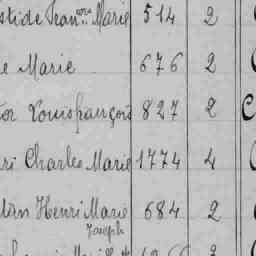 Marie 514 2
e Marie 676 2
Louis françois 827 2
ri Charles Marie 1774 4
Henri Marie 684 2
Joseph